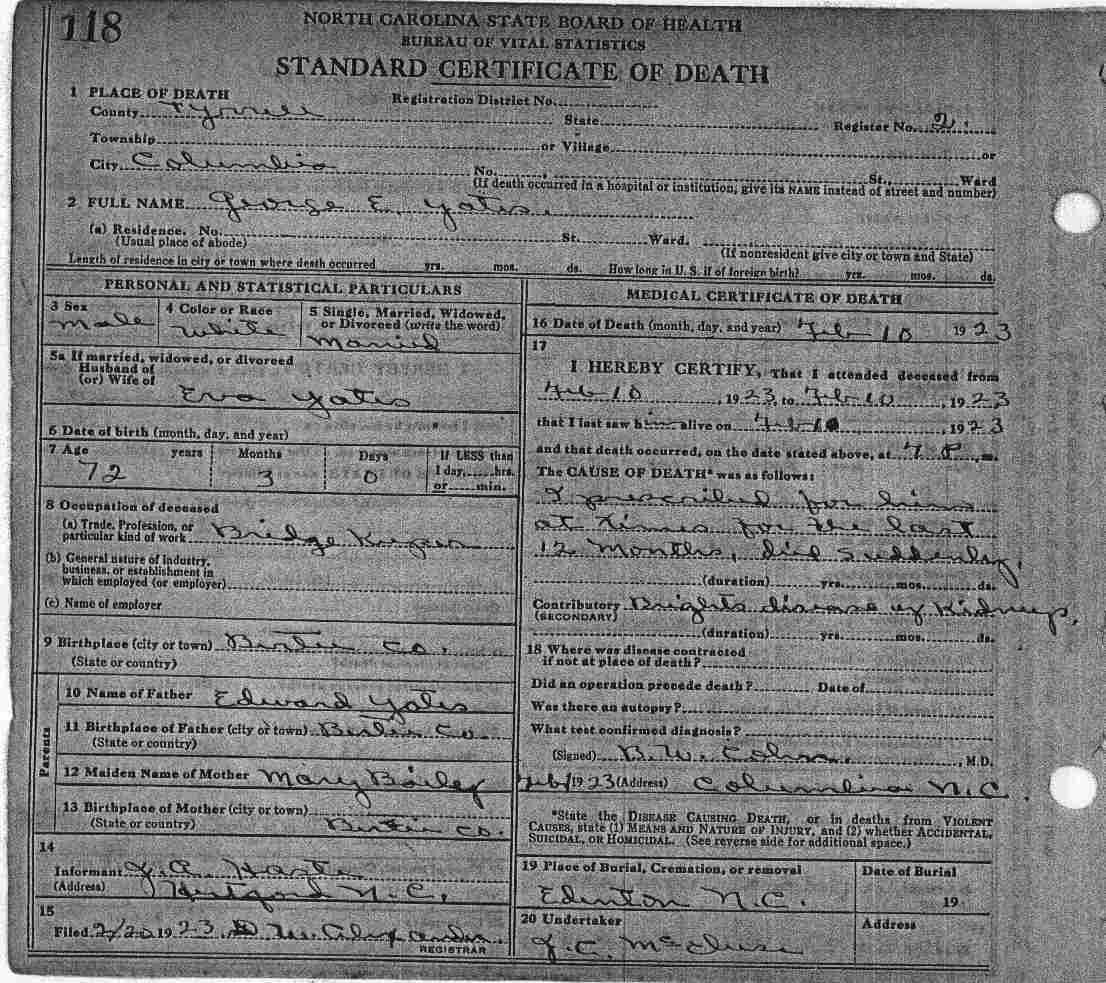 118
NORTH CAROLINA STATE BOARD OF HEALTH
BUREAU OF VITAL STATISTICS
STANDARD CERTIFICATE OF DEATH
1 PLACE OF DEATH Registration District No.
County Tyrrell State Register No. 2.
Township or Village or
City Columbia No. , St., Ward
(If death occurred in a hospital or institution, give its NAME instead of street and number)
2 FULL NAME George E. Yates.
(a) Residence. No. St. Ward.
(Usual place of abode) (If nonresident give city or town and State)
Length of residence in city or town where death occurred yrs. mos. ds. How long in U. S. if of foreign birth? yrs. mos. ds.
PERSONAL AND STATISTICAL PARTICULARS
3 Sex 4 Color or Race 5 Single, Married, Widowed,
or Divorced (write the word)
Male White Married
5a If married, widowed, or divorced
Husband of
(or) Wife of
Eva Yates
6 Date of birth (month, day, and year)
7 Age years Months Days If LESS than
1 day, hrs.
or min.
72 3 0
8 Occupation of deceased
(a) Trade, Profession, or
particular kind of work Bridge Keeper
(b) General nature of industry,
business, or establishment in
which employed (or employer)
(c) Name of employer
9 Birthplace (city or town) Bertie Co.
(State or country)
Parents
10 Name of Father Edward Yates
11 Birthplace of Father (city or town) Bertie Co.
(State or country)
12 Maiden Name of Mother Mary Bailey
13 Birthplace of Mother (city or town)
(State or country) Bertie Co.
14
Informant
(Address) Hertford N.C.
15
Filed 2/20 1923 Alexander
REGISTRAR
MEDICAL CERTIFICATE OF DEATH
16 Date of Death (month, day, and year) Feb 10 1923
17
I HEREBY CERTIFY, That I attended deceased from
Feb 10, 1923, to Feb 10, 1923
that I last saw him alive on Feb 10 1923
and that death occurred, on the date stated above, at 7 P. m.
The CAUSE OF DEATH* was as follows:
I prescribed for him
at times for the last
12 Months, died suddenly.
(duration) yrs. mos. ds.
Contributory Brights disease of Kidneys.
(SECONDARY)
(duration) yrs. mos. ds.
18 Where was disease contracted
if not at place of death?
Did an operation precede death? Date of
Was there an autopsy?
What test confirmed diagnosis?
(Signed) B. W. , M.D.
1923 (Address) Columbia N.C.
*State the DISEASE CAUSING DEATH, or in deaths from VIOLENT
CAUSES, state (1) MEANS AND NATURE OF INJURY, and (2) whether ACCIDENTAL,
SUICIDAL, OR HOMICIDAL. (See reverse side for additional space.)
19 Place of Burial, Cremation, or removal Date of Burial
Edenton N.C. 19
20 Undertaker Address